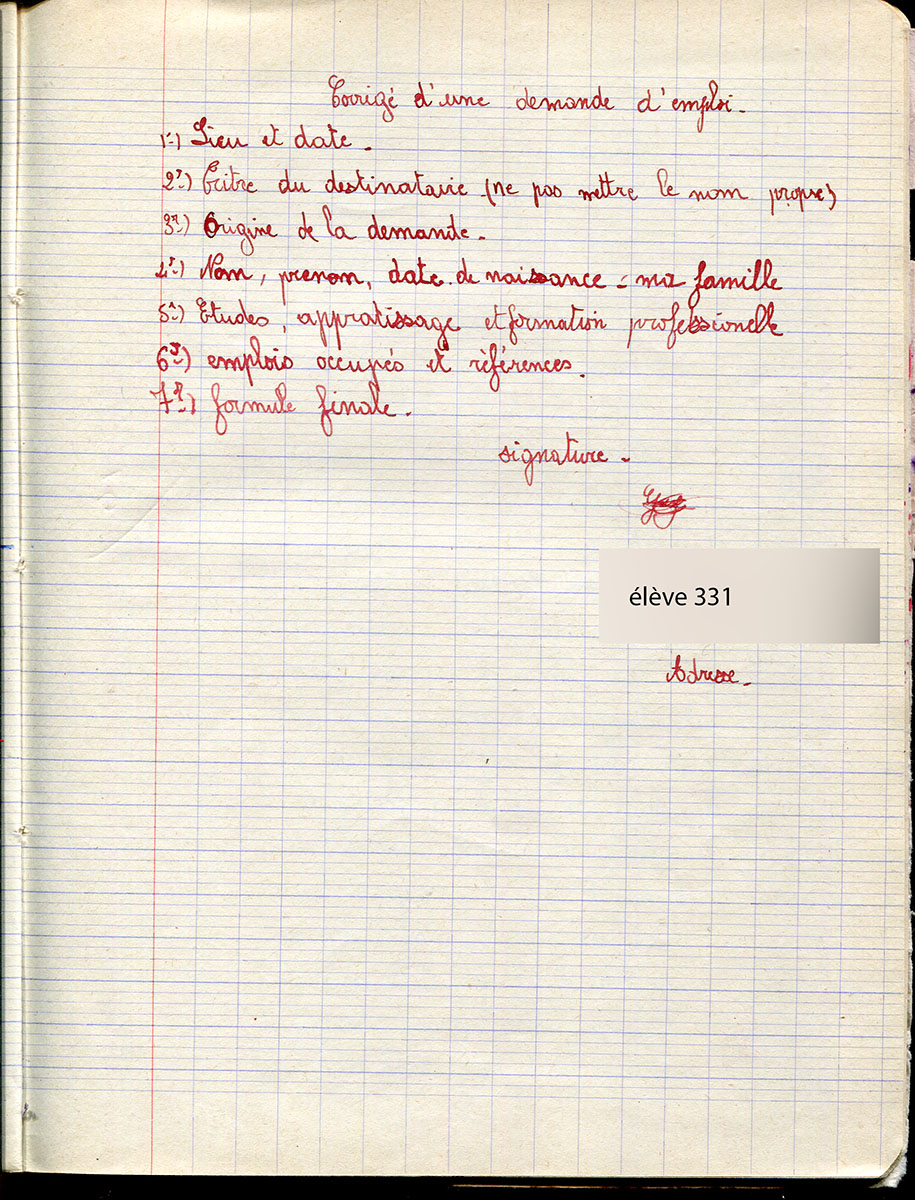 Corrigé d'une demande d'emploi.
1-) Lieu et date.
2-) Titre du destinataire (ne pas mettre le nom propre)
3-) Origine de la demande.
4-) Nom, prenom, date de naissance - ma famille
5-) Etudes, appratissage et formation professionelle
6-) emplois occupés et références.
7-) formule finale.
signature.
élève 331
Adresse.